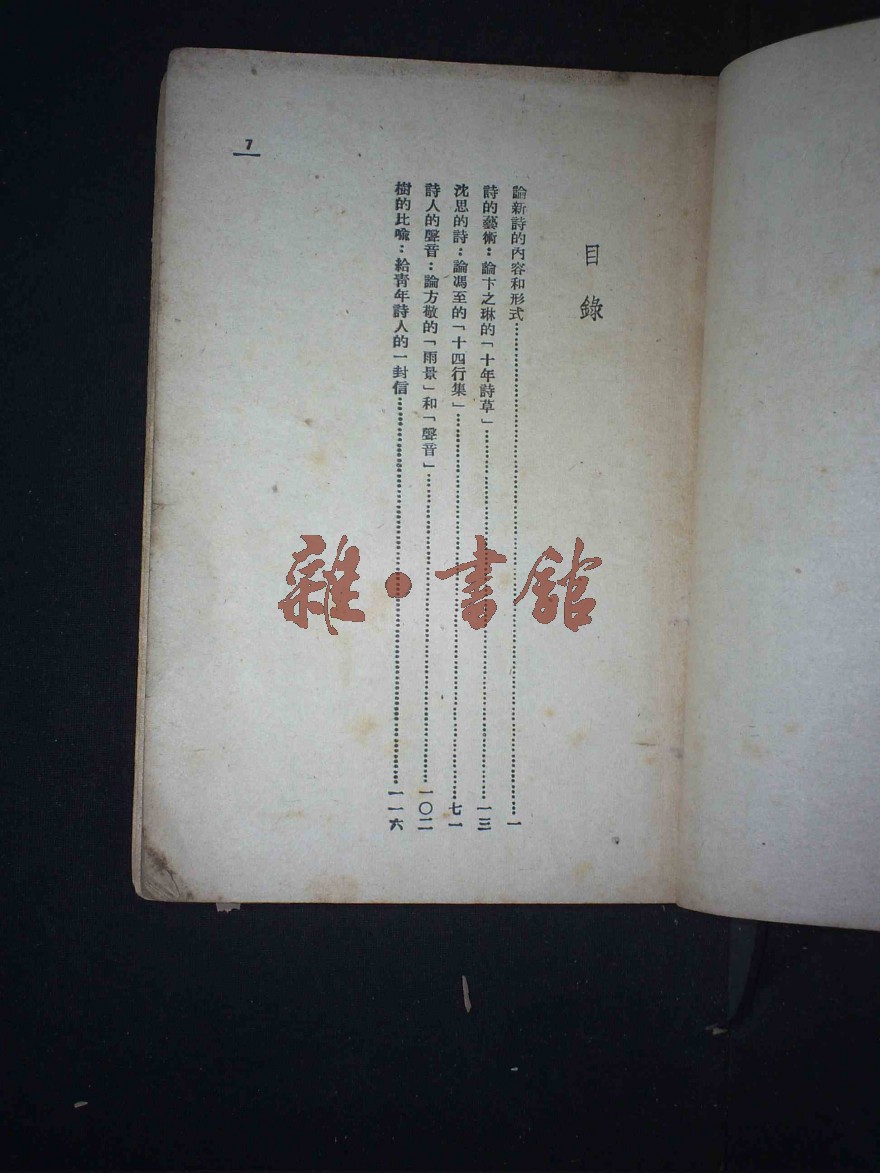 目錄
論新詩的內容和形式……一
詩的藝術：論卞之琳的「十年詩草」……一三
沈思的詩：論馮至的「十四行集」……七一
詩人的聲音：論方敬的「雨景」和「聲音」……一〇二
樹的比喩：給靑年詩人的一封信……一一六
7
雜·書館